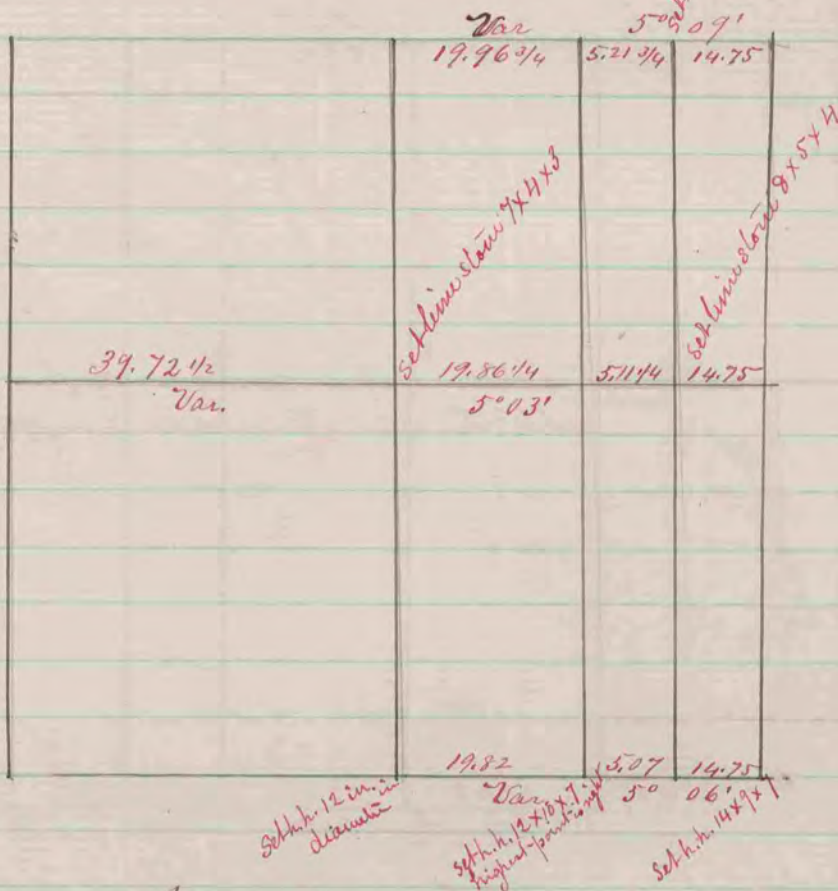 Var 5° 09'
set
19.96 3/4 5.21 3/4 14.75
set lime stone 7x4x3
set lime stone 8x5x4
39.72 1/2 19.86 1/4 5.11 1/4 14.75
Var. 5° 03'
19.82 5.07 14.75
Var. 5° 06'
set h.h. 12 in. in
diameter
set h.h. 12x10x7
highest point is right
set h.h. 14x9x7